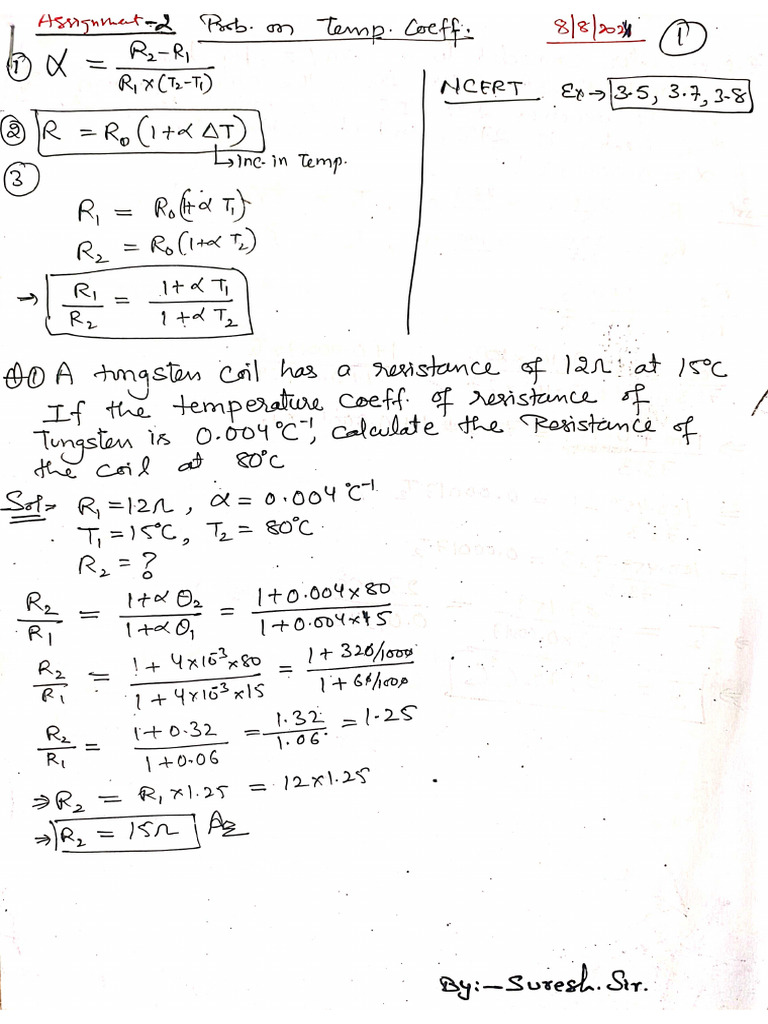 Assignment-2 Prob. on Temp. Coeff. 8/8/2021 ①
① α = (R₂-R₁)/(R₁×(T₂-T₁))
NCERT Ex→ 3.5, 3.7, 3.8
② R = R₀(1+α ΔT)
↳Inc. in Temp.
③
R₁ = R₀(1+α T₁)
R₂ = R₀(1+α T₂)
→ R₁/R₂ = (1+α T₁)/(1+α T₂)
① A tungsten coil has a resistance of 12Ω at 15°C
If the temperature coeff. of resistance of
Tungsten is 0.004°C⁻¹, calculate the Resistance of
the coil at 80°C
Sol:- R₁=12Ω, α=0.004°C⁻¹
T₁=15°C, T₂=80°C
R₂=?
R₂/R₁ = (1+α θ₂)/(1+α θ₁) = (1+0.004×80)/(1+0.004×15)
R₂/R₁ = (1+4×10⁻³×80)/(1+4×10⁻³×15) = (1+320/1000)/(1+60/1000)
R₂/R₁ = (1+0.32)/(1+0.06) = 1.32/1.06 = 1.25
⇒R₂ = R₁×1.25 = 12×1.25
⇒ R₂ = 15Ω As
By:-Suresh.Sir.